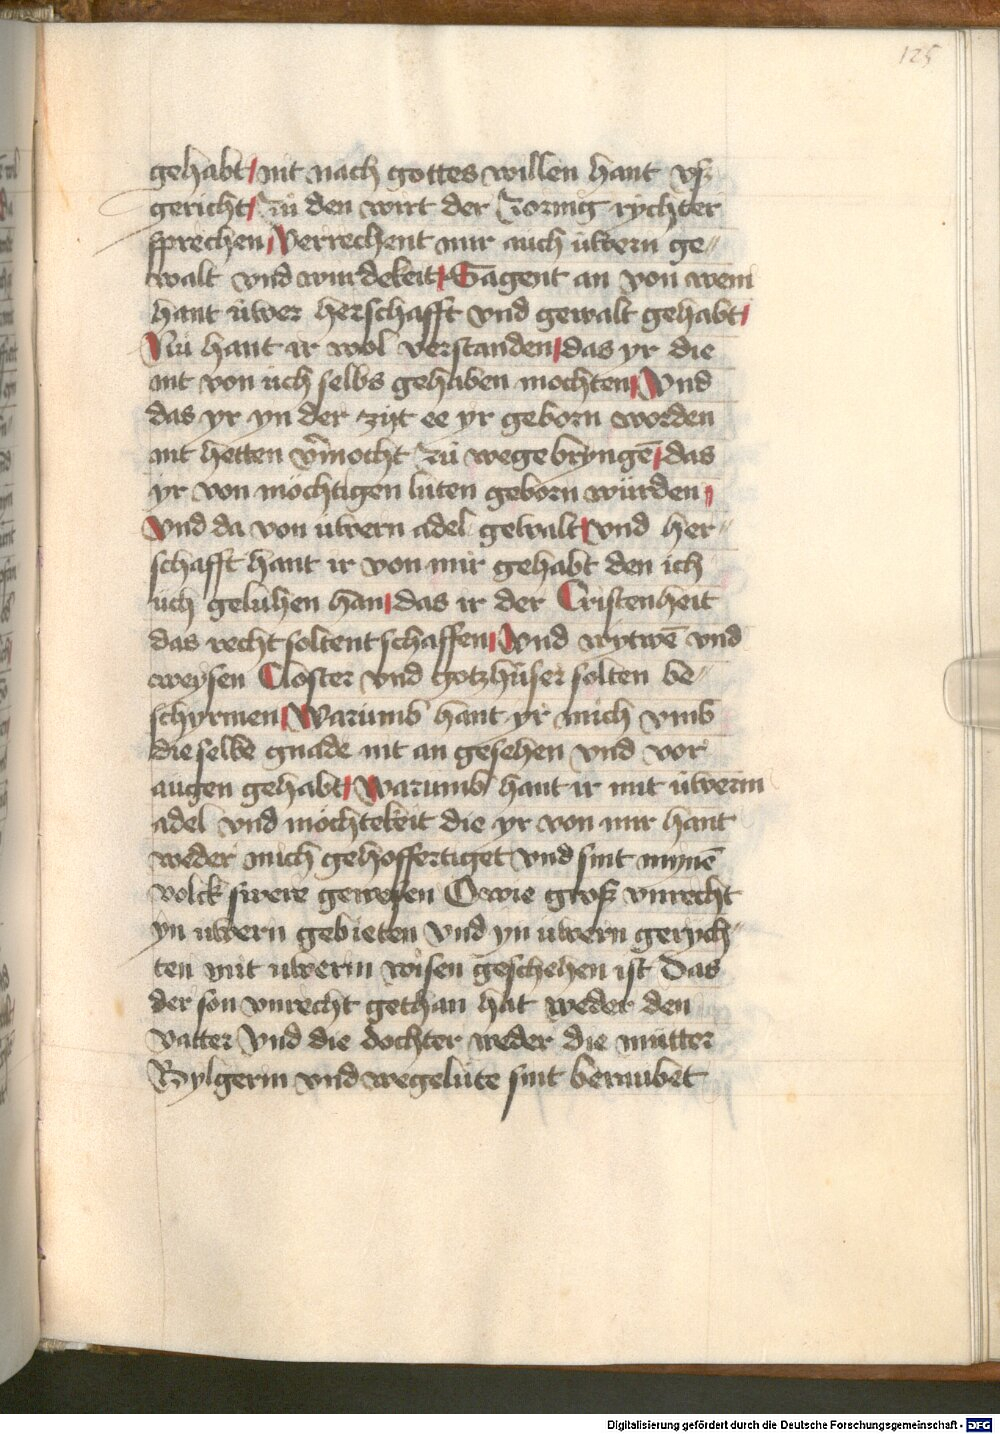 125
gehabt / nit nach gottes willen hant vß
gericht / zü den wirt der zornig rychter
sprechen / Verrechent mir auch üwern ge„
walt vnd wurdekeit / Sagent an von wem
hant üwer herschafft vnd gewalt gehabt /
Nü hant ir wol verstanden / das yr die
nit von üch selbs gehaben mochten / Vnd
das yr yn der zijt ee yr geborn worden
nit hetten v̄mocht zü wege bryngē / das
yr von mochtigen luten geborn würden /
Vnd da von üwern adel gewalt / vnd her„
schafft hant ir von mir gehabt den ich
üch gelühen han / das ir der Cristenheit
das recht soltent schaffen / Vnd wytwē vnd
weysen Closter vnd gotzhüser solten be„
schyrmen / Warumb hant yr mich vmb
die selbe gnade nit an gesehen vnd vor
augen gehabt / Warumb hant ir mit üwerm
adel vnd mochtekeit die yr von mir hant
weder mich gehoffertiget vnd sint mynē
volck swere gewesen O wie groß vnrecht
yn uwern gebieten vnd yn uwern gerych„
ten mit uwerm wisen geschehen ist Das
der son vnrecht gethan hat weder den
vatter Vnd die dochter weder die mütter
Bylgerin vnd wegelüte sint beraubet
Digitalisierung gefördert durch die Deutsche Forschungsgemeinschaft - DFG